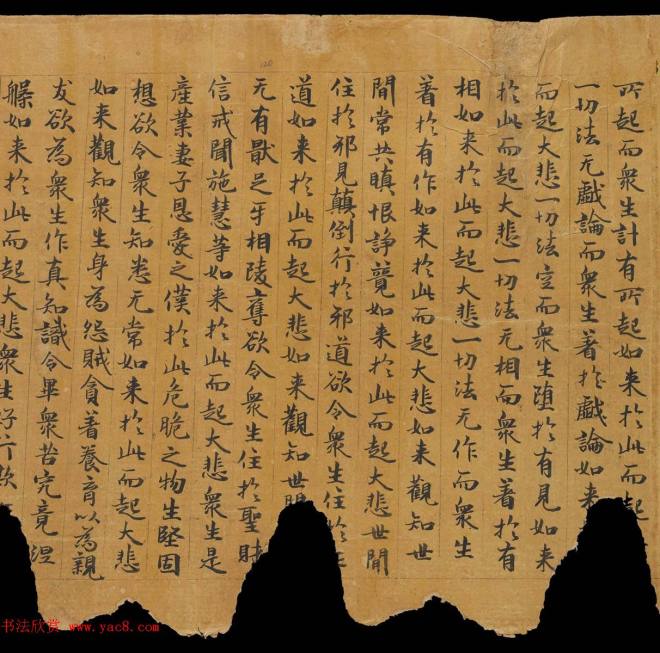 所起而衆生計有所起如来於此而起
一切法无戲論而衆生著於戲論如来
而起大悲一切法空而衆生墮於有見如来
於此而起大悲一切法无相而衆生著於有
相如来於此而起大悲一切法无作而衆生
著於有作如来於此而起大悲如来觀知世
間常共瞋恨諍競如来於此而起大悲世間
住於邪見顛倒行於邪道欲令衆生住於正
道如来於此而起大悲如来觀知世間
无有猒足互相陵奪欲令衆生住於聖財
信戒聞施慧等如来於此而起大悲衆生是
産業妻子恩愛之僕於此危脆之物生堅固
想欲令衆生知悉无常如来於此而起大悲
如来觀知衆生身為怨賊貪著養育以為親
友欲為衆生作真知識令畢衆苦究竟涅
槃如来於此而起大悲衆生好行欺
书法欣赏 www.yac8.com